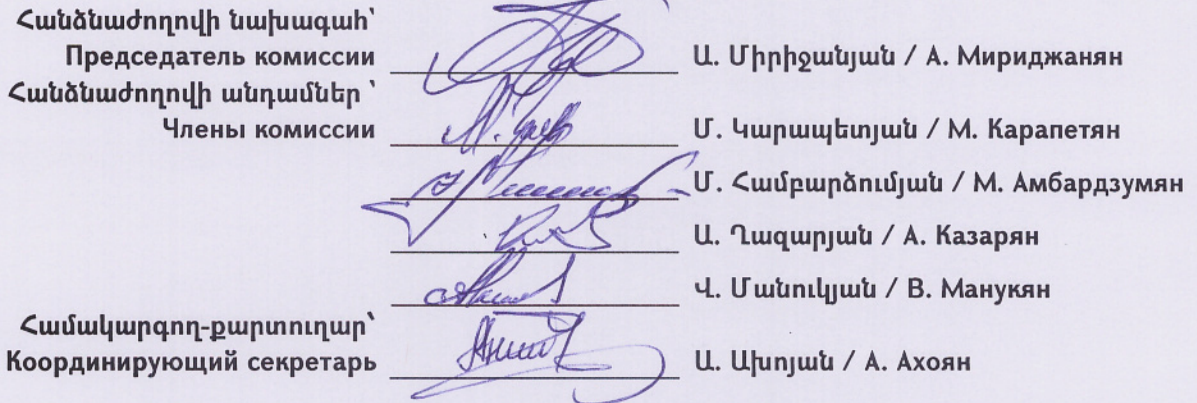 Հանձնաժողովի նախագահ՝
Председатель комиссии Ա. Միրիջանյան / А. Мириджанян
Հանձնաժողովի անդամներ ՝
Члены комиссии Մ. Կարապետյան / М. Карапетян
Մ. Համբարձումյան / М. Амбардзумян
Ա. Ղազարյան / А. Казарян
Վ. Մանուկյան / В. Манукян
Համակարգող-քարտուղար՝
Координирующий секретарь Ա. Ախոյան / А. Ахоян